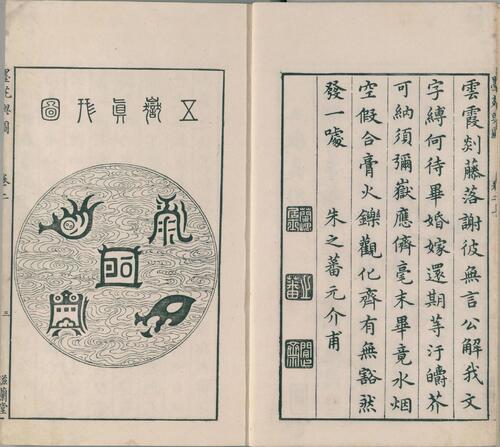 雲霞剡藤落謝彼無言公解我文
字縛何待畢婚嫁還期等汙皭芥
可納須彌嶽應儕毫末畢竟水烟
空假合膏火鑠觀化齊有無豁然
發一噱
朱之蕃元介甫
五嶽真形圖
卷二
三
滋蘭堂